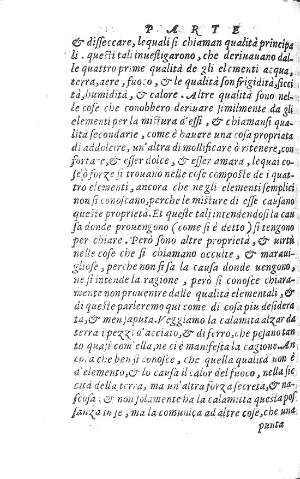 PARTE
& disseccare, lequali si chiaman qualità principa
li. questi tali inuestigarono, che deriuauano dal
le quattro prime qualità de gli elementi acqua,
terra, aere, fuoco, & le qualità son frigidità, sicci
tà, humidità, & calore. Altre qualità sono nel-
le cose che conobbero deriuare similmente da gli
elementi per la mistura d'essi, & chiamansi qua
lità secondarie, come è hauere una cosa propriata
di addolcire, un'altra di mollificare ò ritenere, con
fortare, & esser dolce, & esser amara, le quai co
se, ò forze si trouano nelle cose composte de i qua
tro elementi, ancora che negli elementi semplici
non si conoscano, perche le misture di esse causano
queste proprietà. Et queste tali intendendosi la cau
sa donde prouengono (come si è detto) si tengono
per chiare. Però sono altre proprietà, & uirtù
nelle cose che si chiamano occulte, & maraui-
gliose, perche non si sa la causa donde uengono,
ne si intende la ragione, però si conosce chiara-
mente non prouenire dalle qualità elementali, &
di queste parleremo qui come di cosa più desidera
ta, & men saputa. Veggiamo la calamita alzar da
terra i pezzi d'acciaio, & di ferro, che pesano tan
to quasi com'ella, ne ci è manifesta la cagione. An
cora che ben si conosce, che quella qualità non è
d'elemento, & lo causa il calor del fuoco, nella sic
cità della terra, ma un'altra forza secreta, & na-
scosa: & non solamente ha la calamita questa pos
sanza in se, ma la comunica ad altre cose, che una
punta